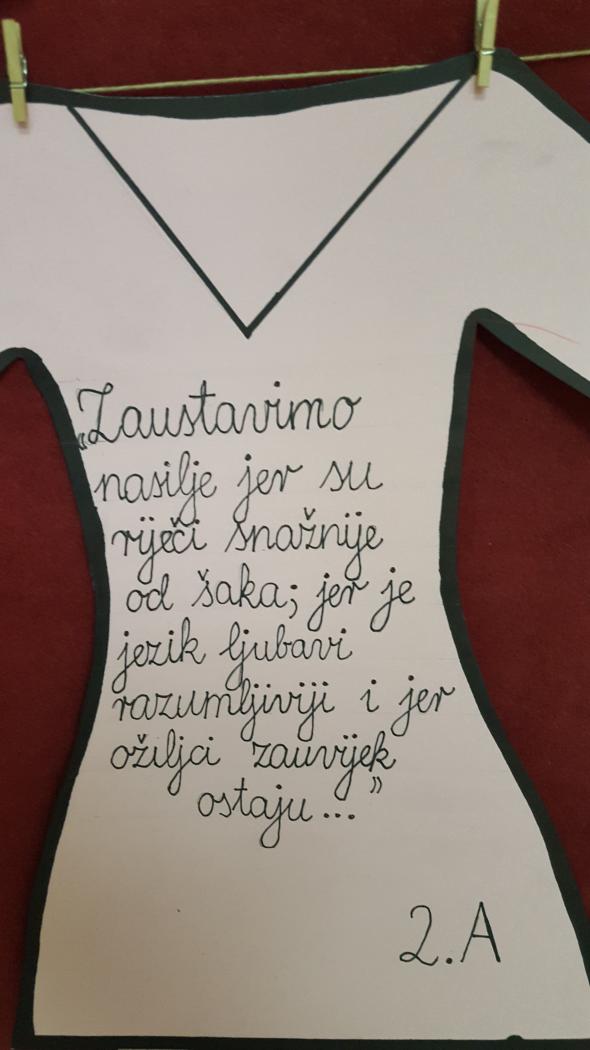 „Zaustavimo
nasilje jer su
riječi snažnije
od šaka; jer je
jezik ljubavi
razumljiviji i jer
ožiljci zauvijek
ostaju..."
2.A